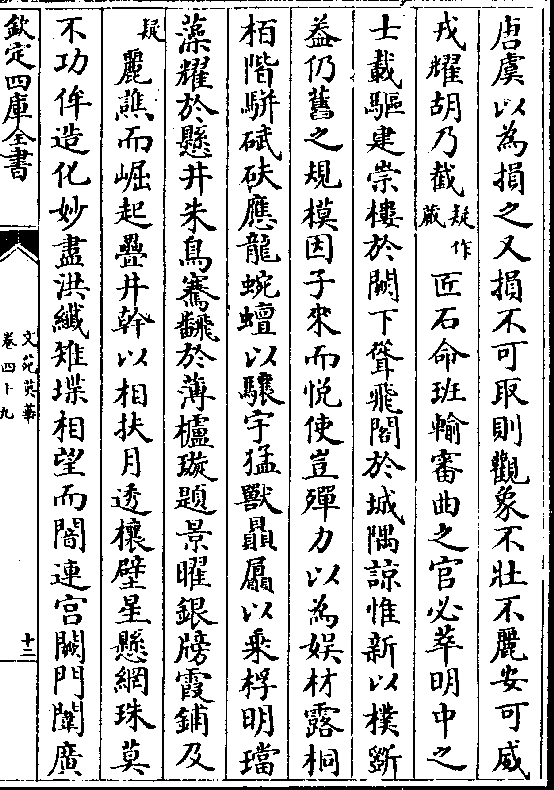 唐虞以為損之又損不可取則觀象不壯不麗安可威
戎耀胡乃截疑作蕆匠石命班輸審曲之官必萃明中之
士載驅建崇樓於闕下聳飛閣於城隅諒惟新以樸斵
益仍舊之規模因子來而悅使豈殫力以為娱材露桐
栢階駢碔砆應龍蜿蟺以驤宇猛獸贔屭以乘桴明璫
藻耀於懸井朱鳥騫飜於薄櫨璇題景曜銀牓霞鋪及
疑麗譙而崛起疊井幹以相扶月透欀璧星懸網珠莫
不功侔造化妙盡洪纎雉堞相望而闇連宫闕門闈廣
欽定四庫全書
文苑英華
卷四十九
十二